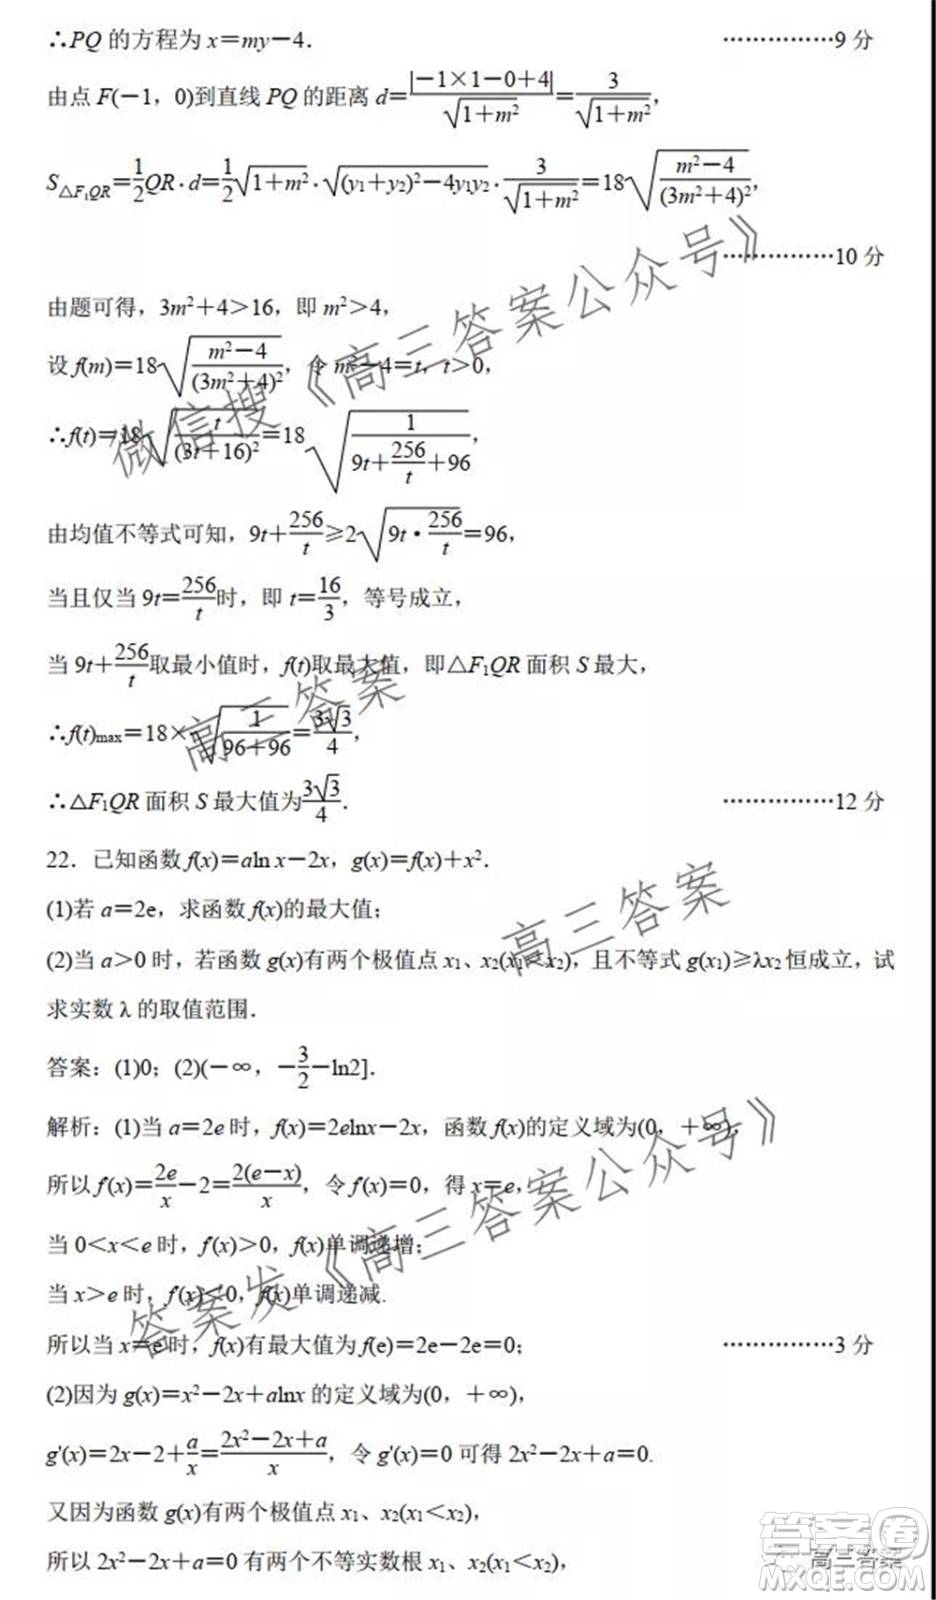 ∴PQ 的方程为 x＝my－4． ……………9 分
由点 F(－1，0)到直线 PQ 的距离 d＝|－1×1－0＋4|/√(1＋m²)＝3/√(1＋m²)，
S△F₁QR＝1/2QR·d＝1/2√(1＋m²)·√((y₁＋y₂)²－4y₁y₂)·3/√(1＋m²)＝18√((m²－4)/(3m²＋4)²)，
……………10 分
由题可得，3m²＋4>16，即 m²>4，
设 f(m)＝18√((m²－4)/(3m²＋4)²)，令 m²－4＝t，t>0，
∴f(t)＝18√(t/(3t＋16)²)＝18√(1/(9t＋256/t＋96))，
由均值不等式可知，9t＋256/t≥2√(9t·256/t)＝96，
当且仅当 9t＝256/t时，即 t＝16/3，等号成立，
当 9t＋256/t取最小值时，f(t)取最大值，即△F₁QR 面积 S 最大，
∴f(t)max＝18×√(1/(96＋96))＝3√3/4，
∴△F₁QR 面积 S 最大值为3√3/4． ……………12 分
22．已知函数 f(x)＝aln x－2x，g(x)＝f(x)＋x²．
(1)若 a＝2e，求函数 f(x)的最大值；
(2)当 a＞0 时，若函数 g(x)有两个极值点 x₁、x₂(x₁＜x₂)，且不等式 g(x₁)≥λx₂ 恒成立，试
求实数 λ 的取值范围．
答案：(1)0；(2)(－∞，－3/2－ln2]．
解析：(1)当 a＝2e 时，f(x)＝2elnx－2x，函数 f(x)的定义域为(0，＋∞)，
所以 f'(x)＝2e/x－2＝2(e－x)/x，令 f'(x)＝0，得 x＝e，
当 0＜x＜e 时，f'(x)＞0，f(x)单调递增；
当 x＞e 时，f'(x)＜0，f(x)单调递减.
所以当 x＝e 时，f(x)有最大值为 f(e)＝2e－2e＝0； ……………3 分
(2)因为 g(x)＝x²－2x＋alnx 的定义域为(0，＋∞)，
g'(x)＝2x－2＋a/x＝(2x²－2x＋a)/x，令 g'(x)＝0 可得 2x²－2x＋a＝0.
又因为函数 g(x)有两个极值点 x₁、x₂(x₁＜x₂)，
所以 2x²－2x＋a＝0 有两个不等实数根 x₁、x₂(x₁＜x₂)，
微信搜《高三答案公众号》
高三答案
高三答案
答案发《高三答案公众号》
答案圈
高三答案
MXQE.COM